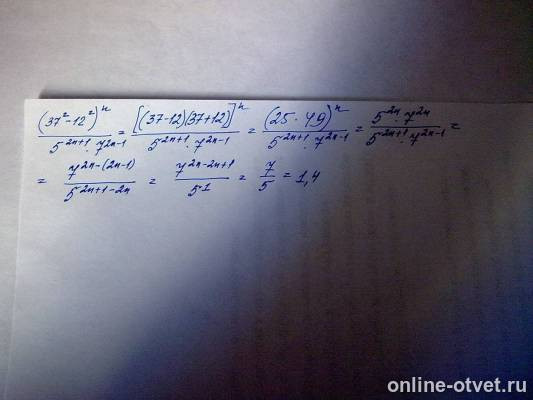 (37²-12²)ⁿ / 5²ⁿ⁺¹·7²ⁿ⁻¹ = [(37-12)(37+12)]ⁿ / 5²ⁿ⁺¹·7²ⁿ⁻¹ = (25·49)ⁿ / 5²ⁿ⁺¹·7²ⁿ⁻¹ = 5²ⁿ·7²ⁿ / 5²ⁿ⁺¹·7²ⁿ⁻¹ =
= 7²ⁿ⁻⁽²ⁿ⁻¹⁾ / 5²ⁿ⁺¹⁻²ⁿ = 7²ⁿ⁻²ⁿ⁺¹ / 5¹ = 7/5 = 1,4
online-otvet.ru